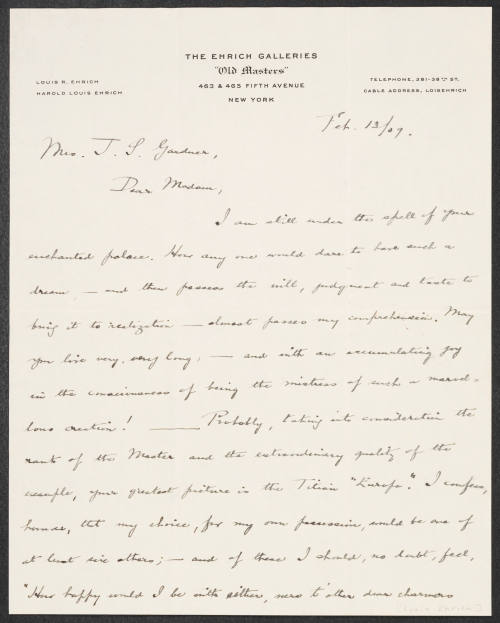 THE EHRICH GALLERIES
"Old Masters"
463 & 465 FIFTH AVENUE
NEW YORK
LOUIS R. EHRICH
HAROLD LOUIS EHRICH
TELEPHONE, 281-38TH ST.
CABLE ADDRESS, LOISEHRICH
Feb. 13/09.
Mrs. J. L. Gardner,
Dear Madam,
I am still under the spell of your
enchanted palace. How any one would dare to have such a
dream — and then possess the will, judgment and taste to
bring it to realization — almost passes my comprehension. May
you live very, very long, — and with an accumulating joy
in the consciousness of being the mistress of such a marvel-
lous creation! — Probably, taking into consideration the
rank of the Master and the extraordinary quality of the
example, your greatest picture is the Titian "Europa". I confess,
however, that my choice, for my own possession, would be one of
at least six others; — and of these I should, no doubt, feel,
"How happy would I be with either, were t'other dear charmers
[Louis Ehrich]